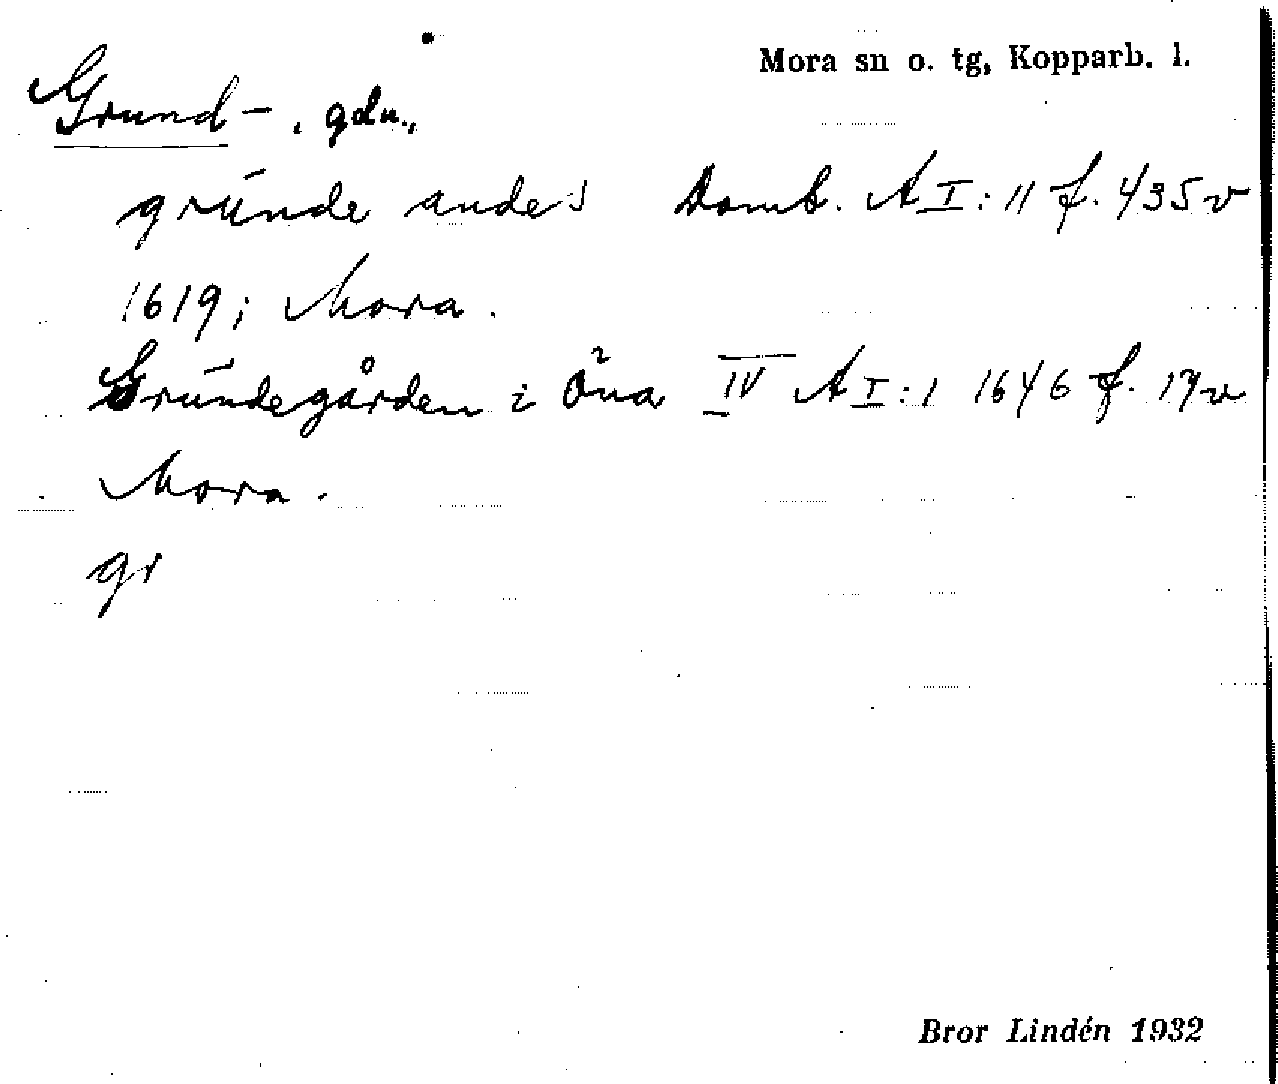 Mora sn o. tg, Kopparb. l.
Grund-, gdn.,
gru̅nde andes Domb. A I: 11 f. 435 v
1619; Mora.
Gru̅ndegården i Öna IV A I: 1 1646 f. 17 v
Mora.
gr
Bror Lindén 1932